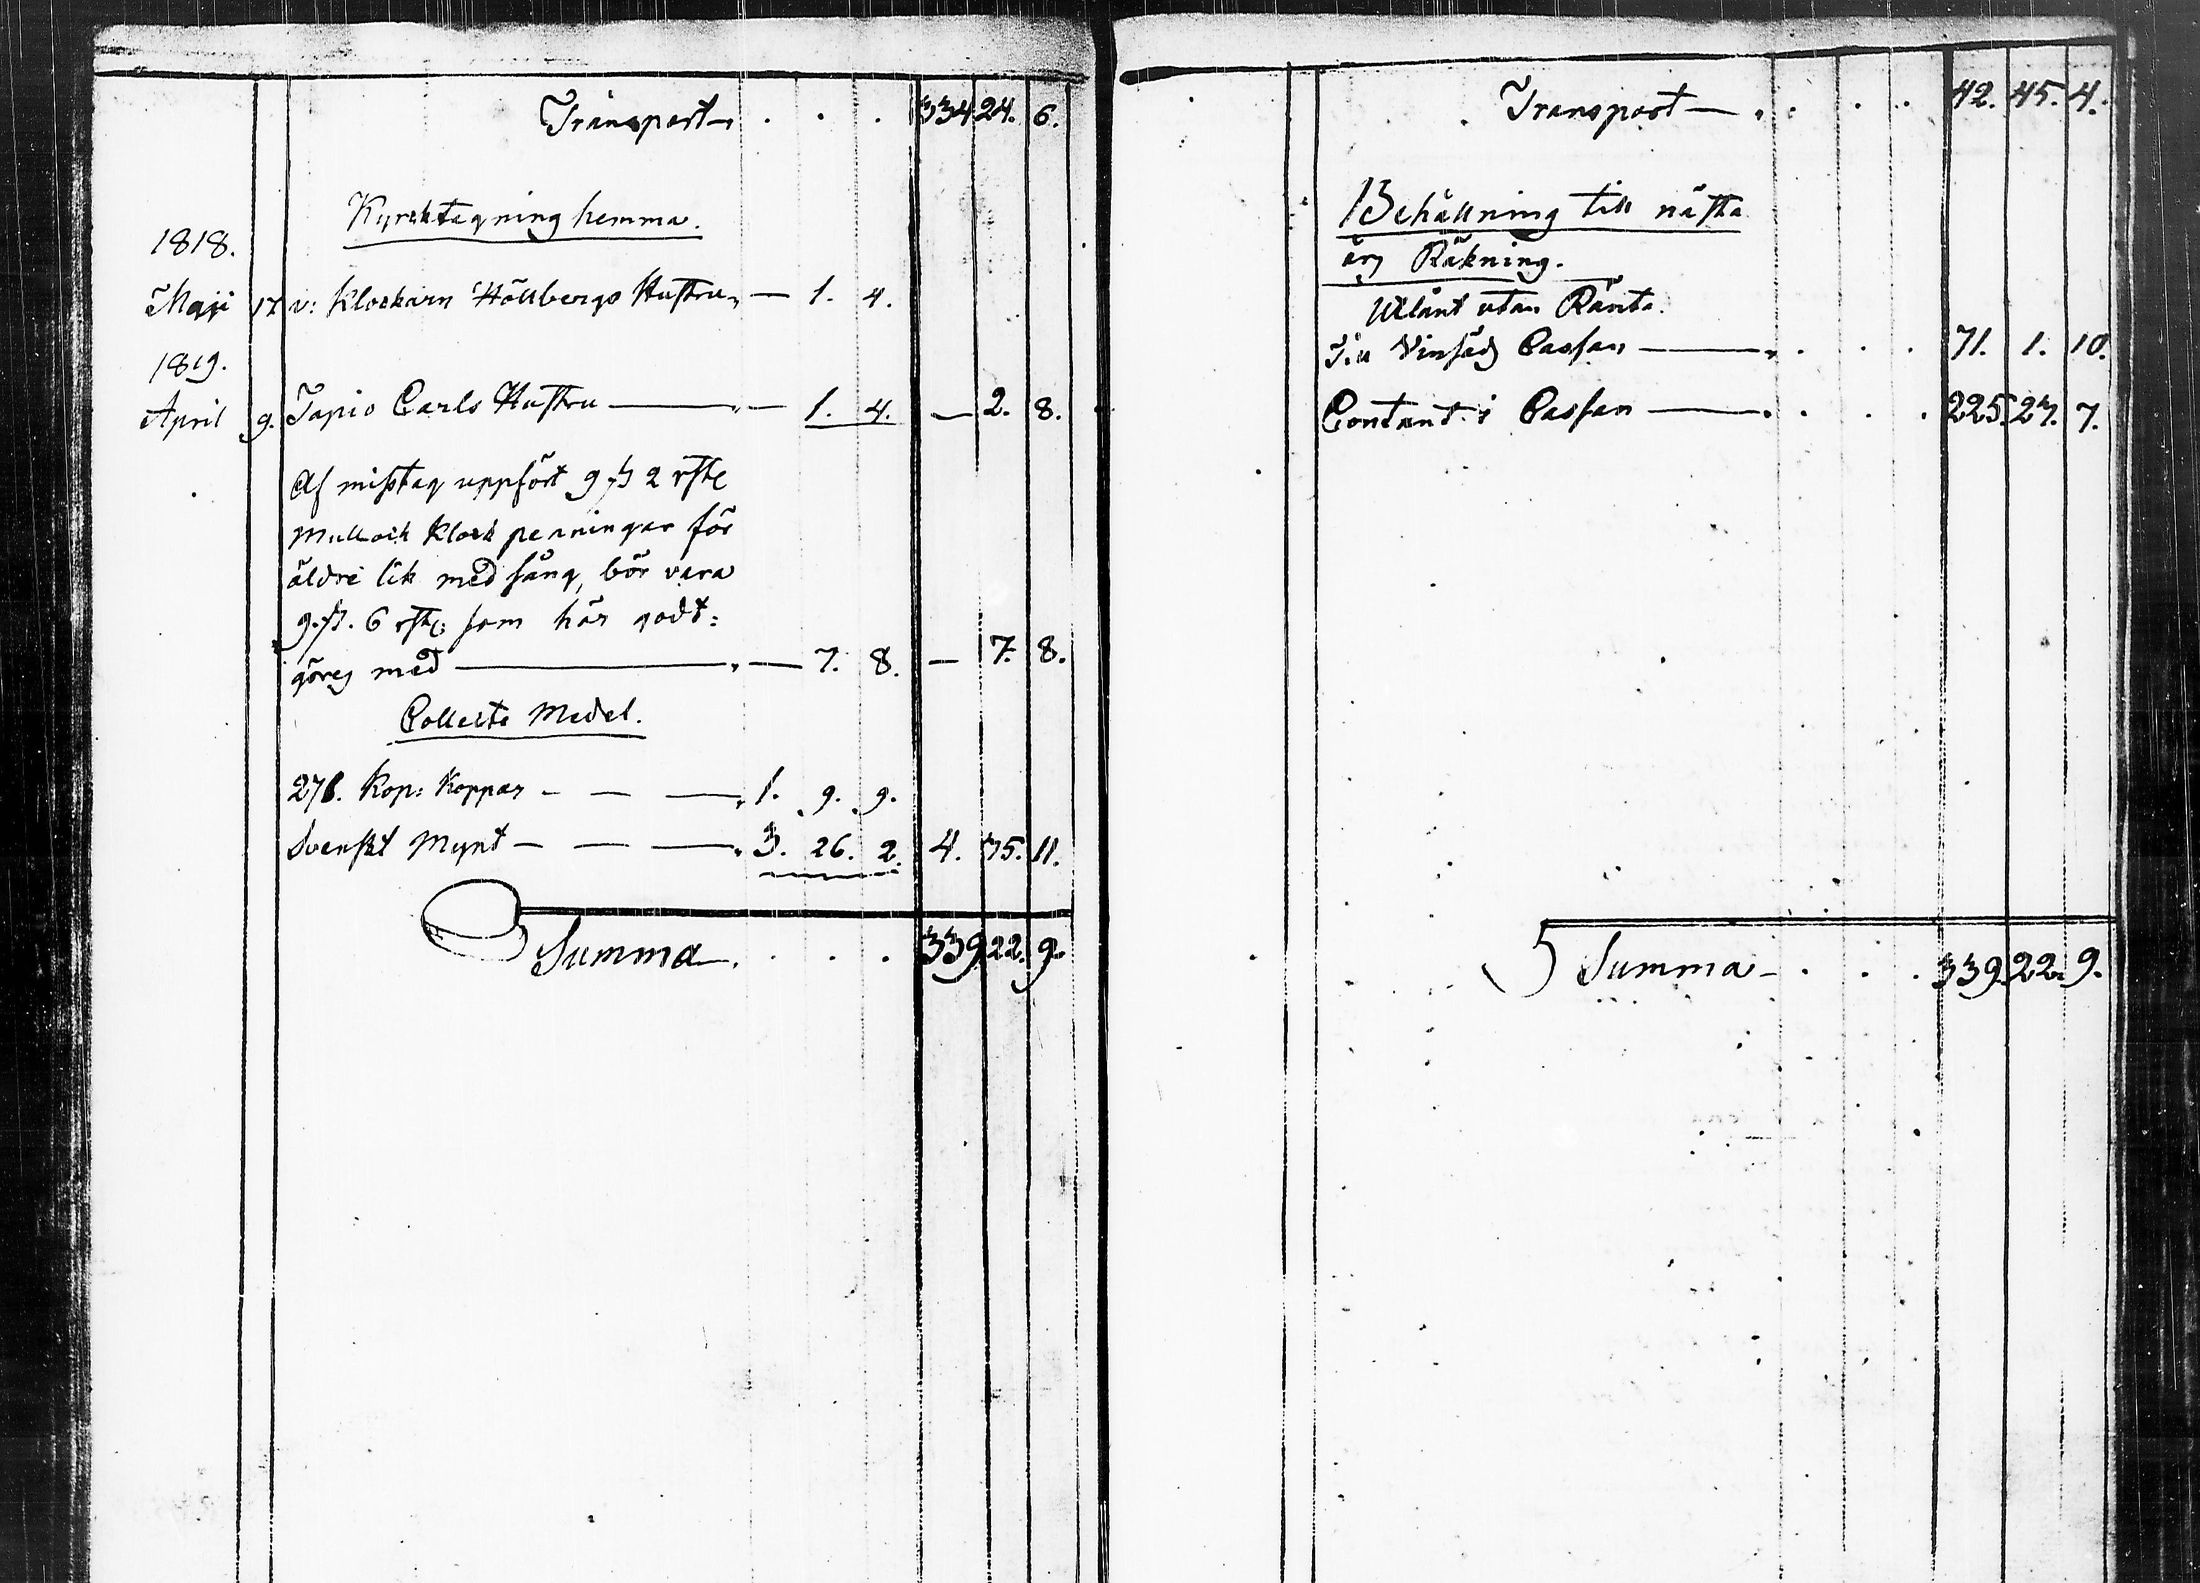 Transport 334 24. 6.
Kyrcktagning hemma.
1818.
Maji 17 v: Klockarn Hällbergs Hustru — 1. 4.
1819.
April 9. Tapio Carls Hustru — 1. 4. — 2. 8.
Af misstag uppfört 9 2 rste
Mull och Klock penningar för
äldre lik med sång, bör vara
9. 6 rste. som här godt:
göres med — 7. 8. — 7. 8.
Collecte Medel.
Kop: Koppar — — — 1. 9. 9.
Svenskt Mynt — — — 3. 26. 2. 4. 35. 11.
Summa 339 22. 9.
Transport — 42. 45. 4.
Behållning till nästa
års Räkning.
Utlånt utan Ränta.
Till Cassan — 71. 1. 10.
Contant i Cassan — 225. 27. 7.
Summa — 339. 22. 9.